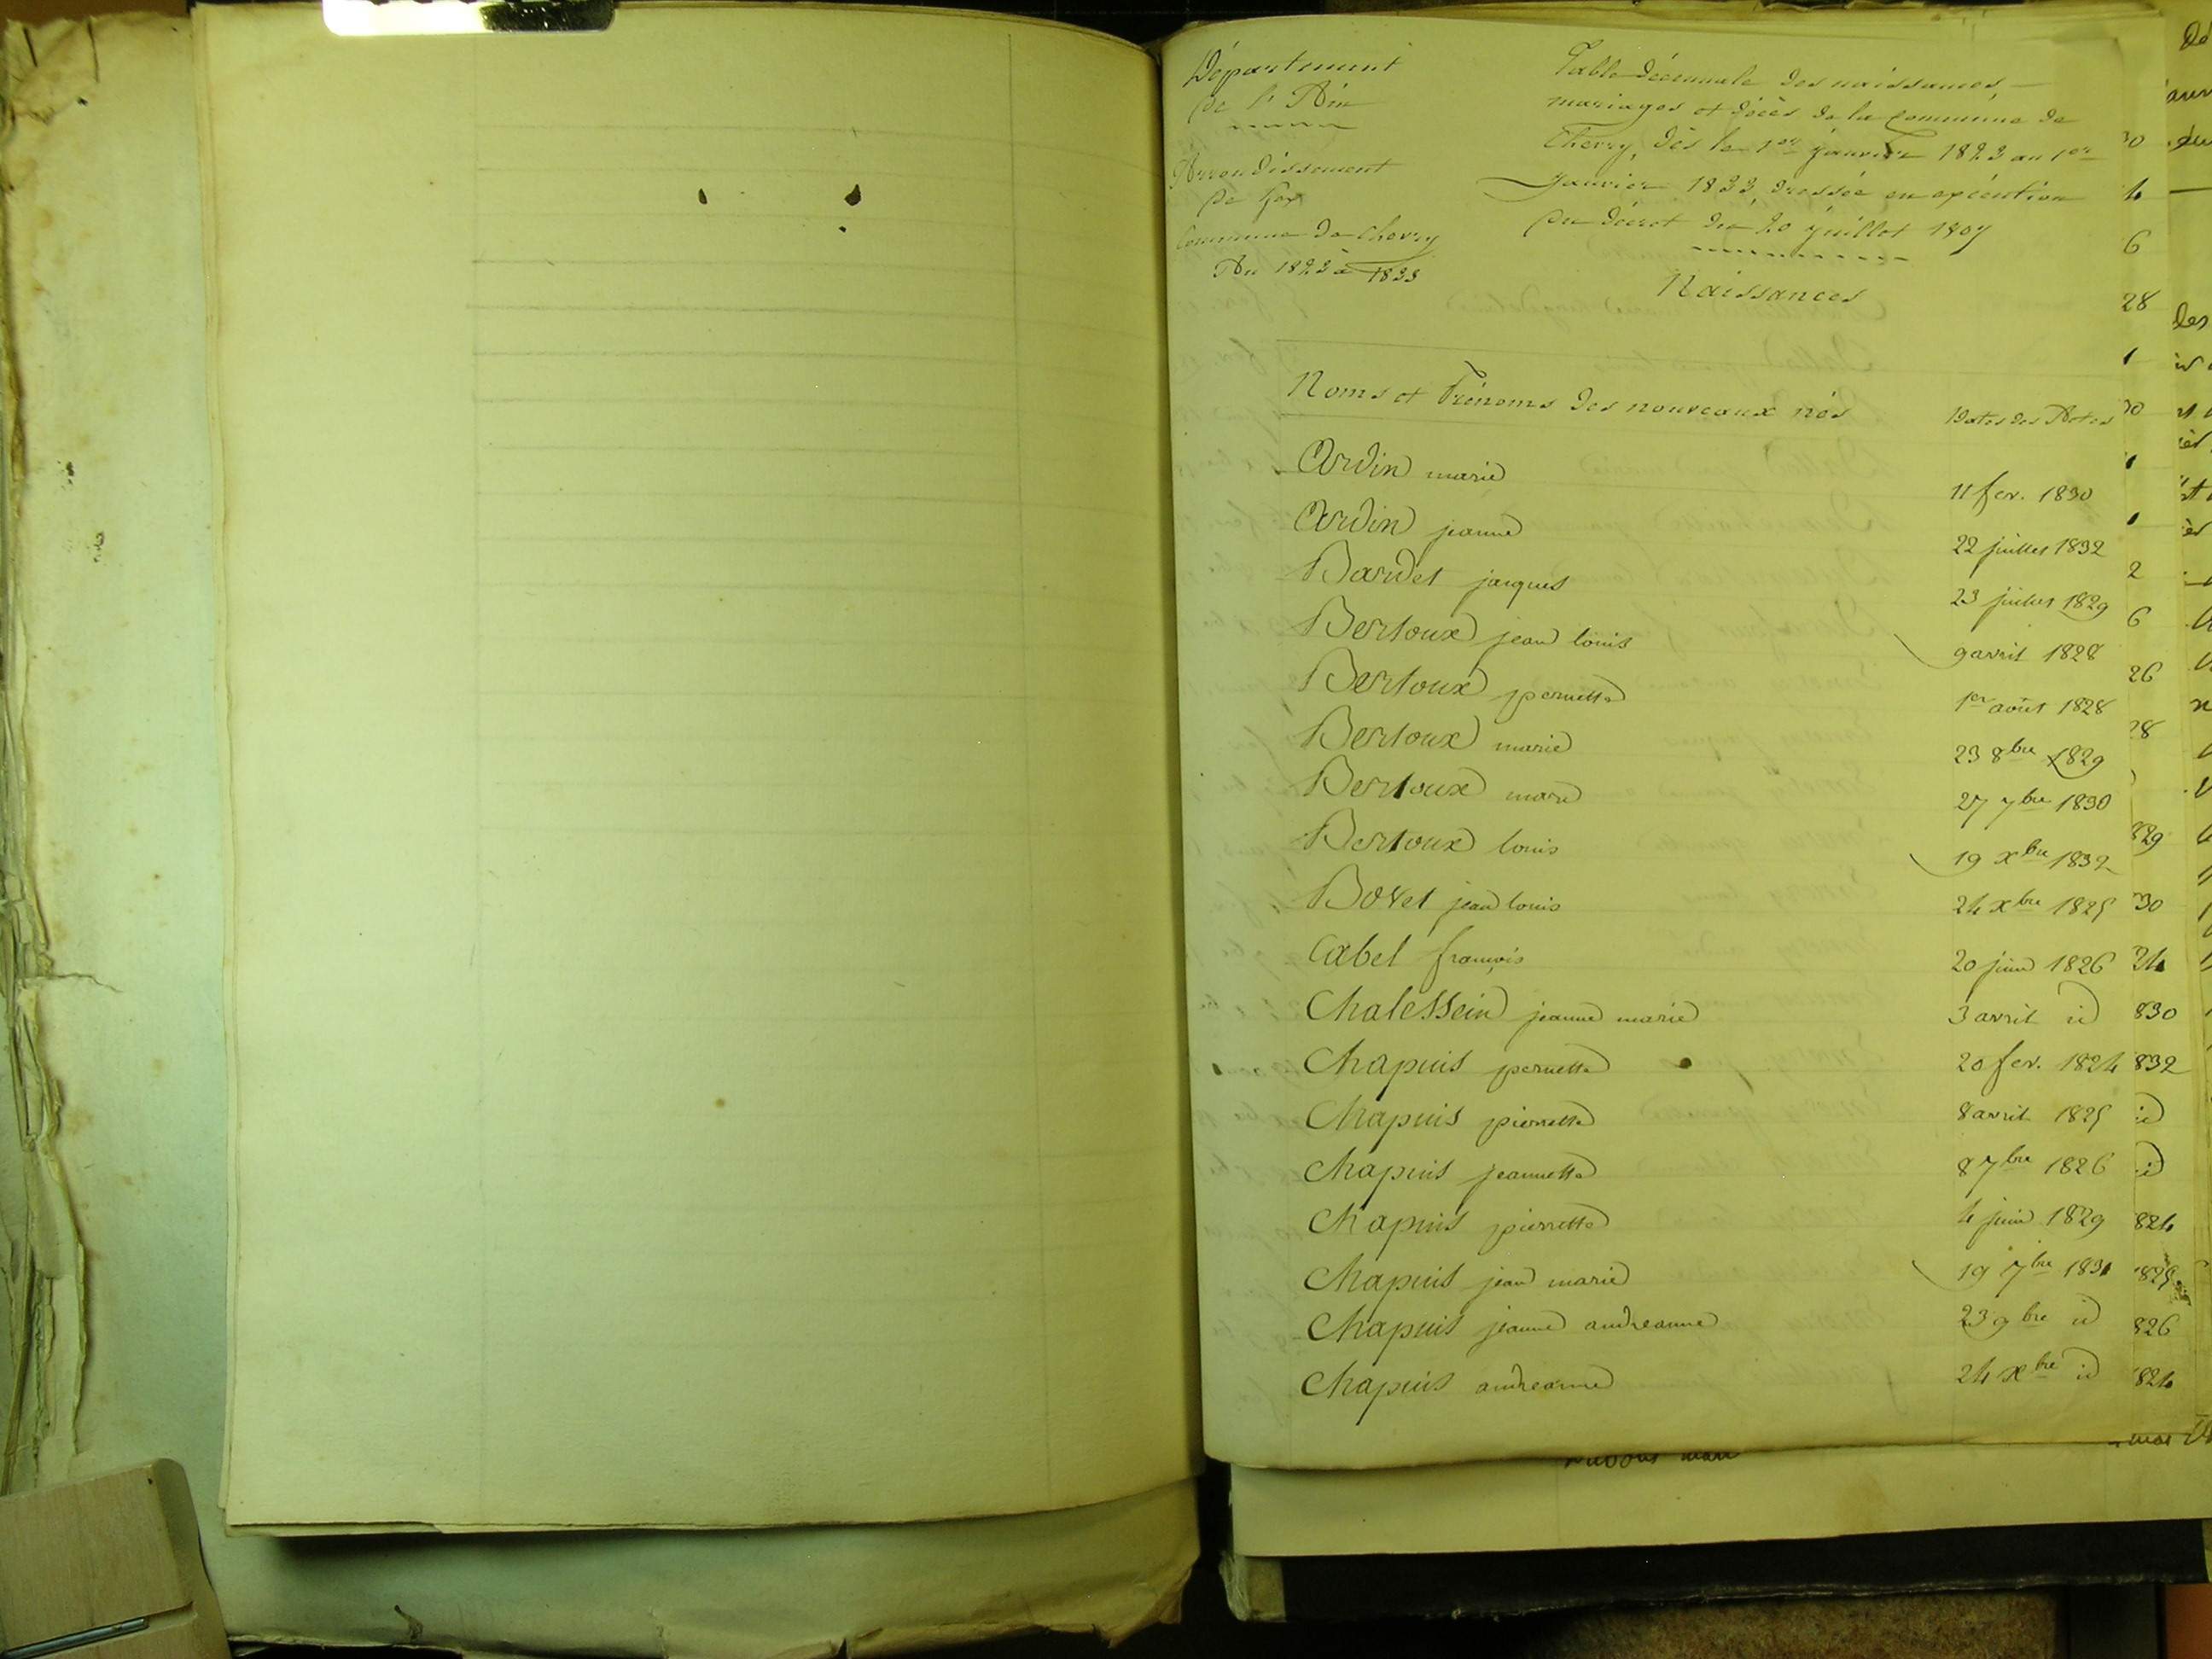 Département
de l'Ain
Arrondissement
de Gex
Commune de Chevry
An 1823 à 1833
Table décennale des naissances,
mariages et décès de la commune de
Chevry, dès le 1er janvier 1823 au 1er
janvier 1833, dressée en exécution
du décret du 20 juillet 1807
Naissances
Noms et Prénoms des nouveaux nés Dates des Actes
Ardin marie 11 fev. 1830
Ardin jeanne 22 juillet 1832
Bardet jacques 23 juillet 1829
Bertoux jean louis 9 avril 1828
Bertoux pernette 1er août 1828
Bertoux marie 23 8bre 1829
Bertoux marie 27 7bre 1830
Bertoux louis 19 xbre 1832
Bovet jean louis 24 xbre 1825
Cabel françois 20 juin 1826
Chalessein jeanne marie 3 avril id
Chapuis pernette 20 fev. 1824
Chapuis pierrette 8 avril 1825
Chapuis jeannette 8 7bre 1826
Chapuis pierrette 4 juin 1829
Chapuis jean marie 19 7bre 1831
Chapuis jeanne andreanne 23 9bre id
Chapuis andreanne 24 xbre id
30
4
6
28
1
30
2
6
26
28
829
30
24
830
832
id
id
824
825
826
824